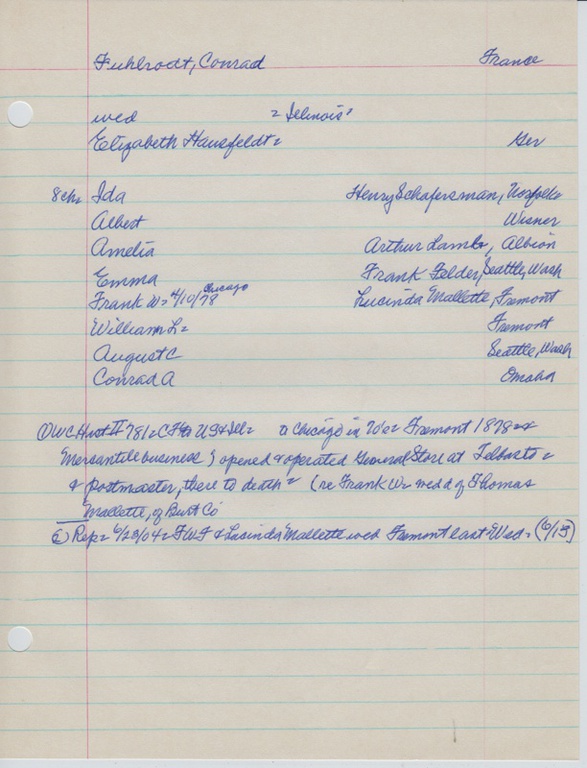 Fuhlrodt, Conrad France
wed = Illinois =
Elizabeth Hausfeldt = Ger
8 chn Ida Henry Schafersman, Norfolk
Albert Wisner
Amelia Arthur Lamb, Albion
Emma Frank Felder, Seattle, Wash
Frank W = 4/10/78 Chicago Lucinda Mallette, Fremont
William L = Fremont
August C Seattle, Wash
Conrad A Omaha
① W C Hist II 781 = CF to US & Ill = to Chicago in 70's = Fremont 1878 =
Mercantile business; opened & operated General Store at Telbasta =
& postmaster, there to death = (re Frank W = wed d of Thomas
Mallette, of Burt Co
② Rep = 6/20/04 = FWF & Lucinda Mallette wed Fremont last Wed = (6/15)